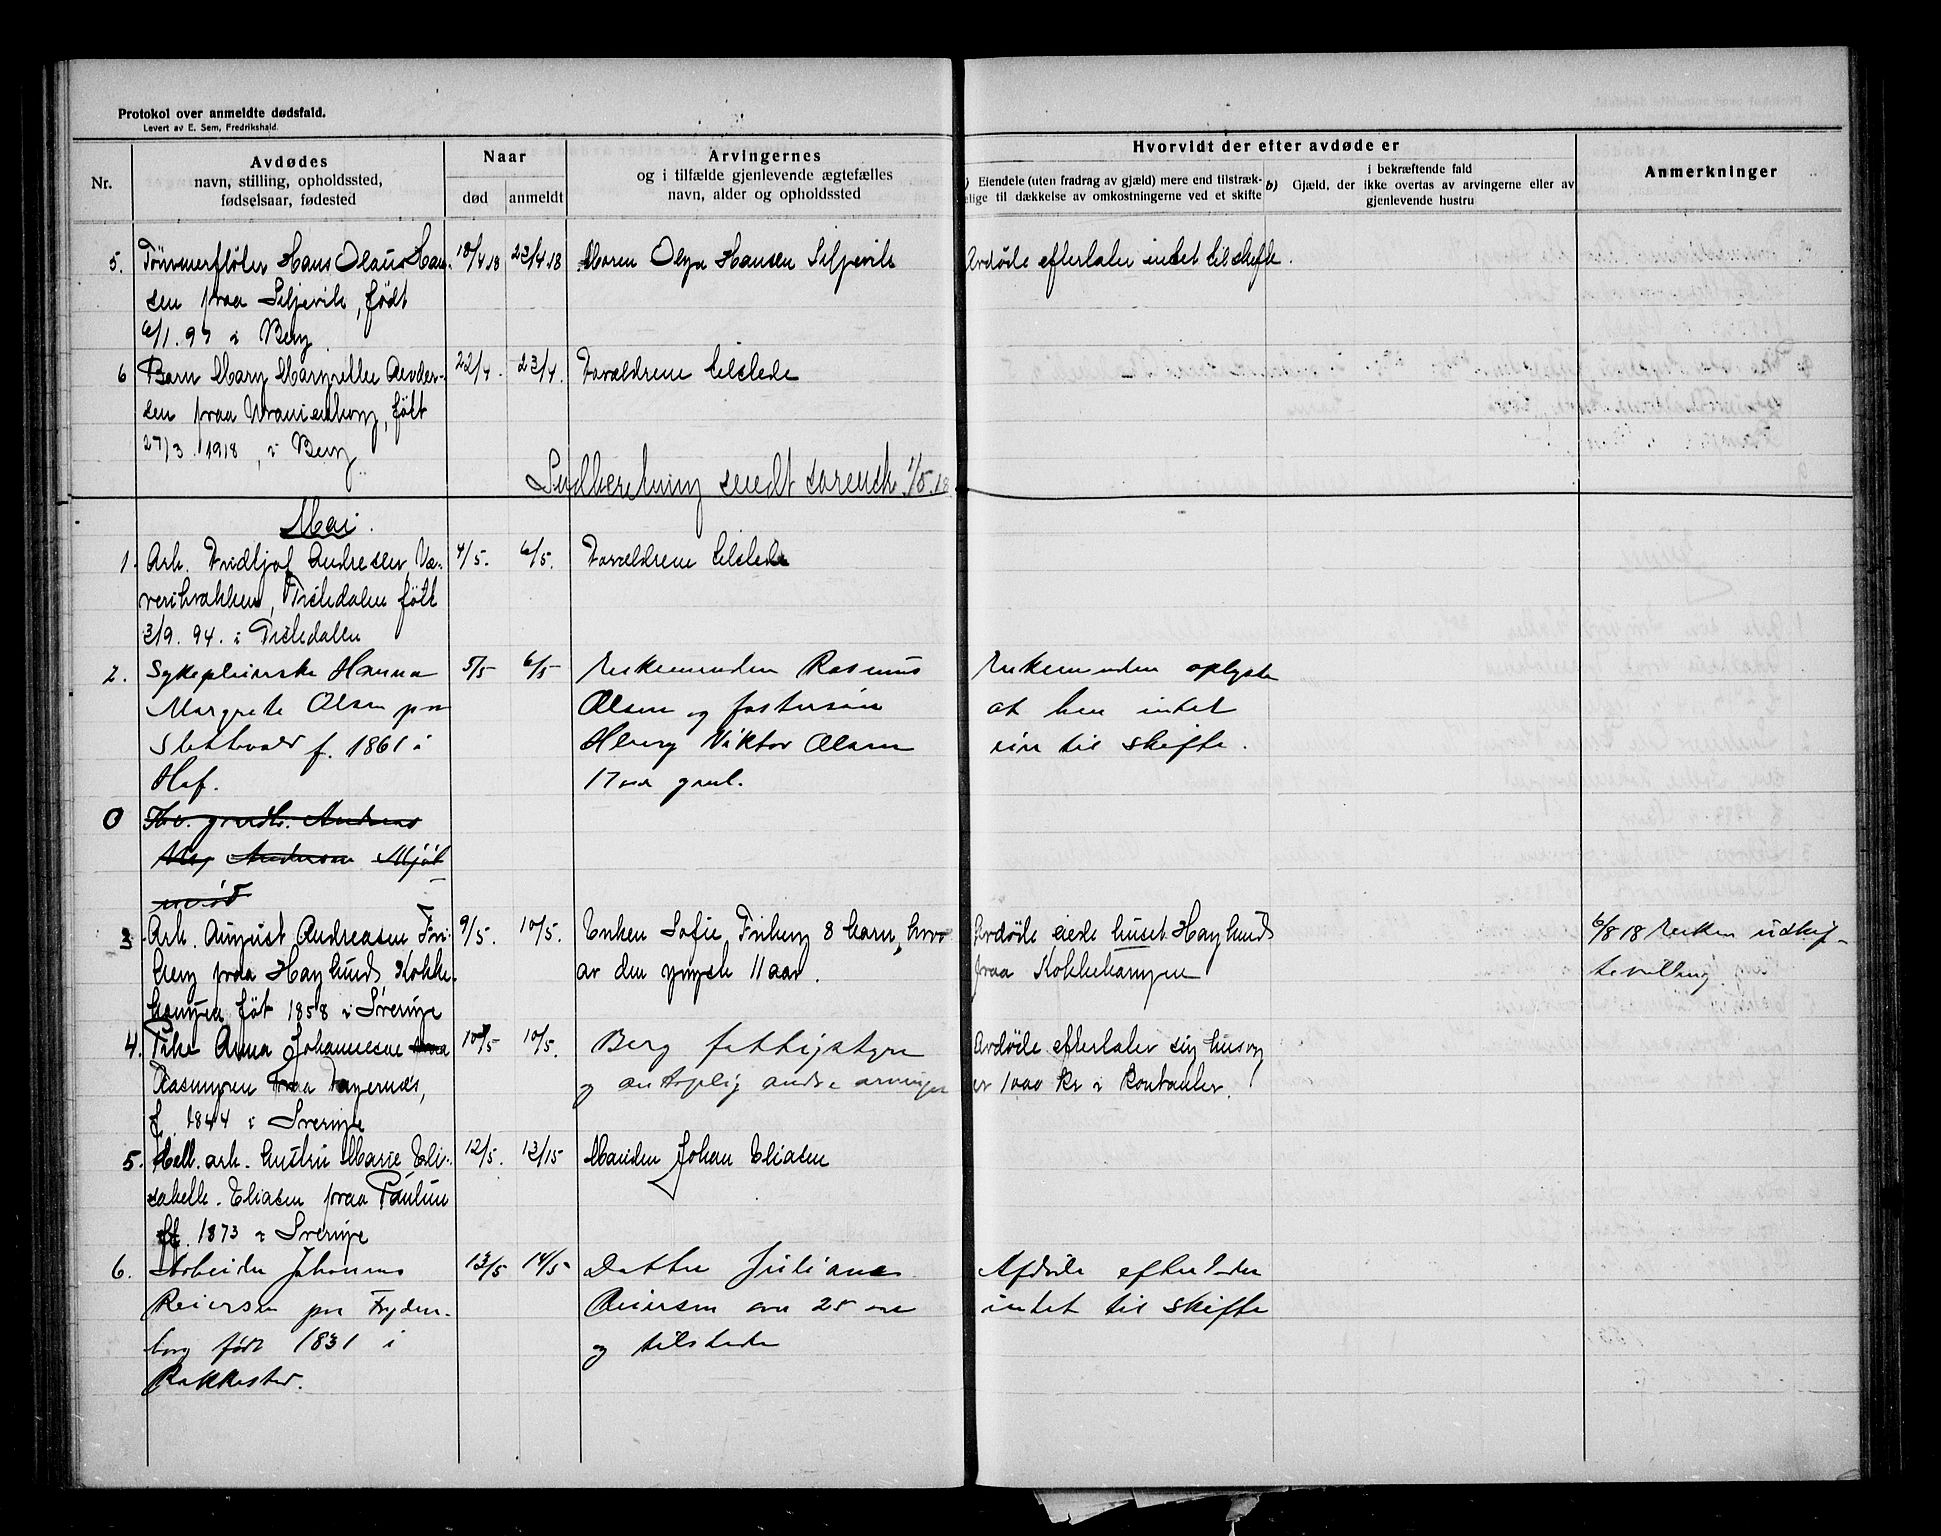 Protokol over anmeldte dødsfald.
Levert av E. Sem, Fredrikshald.
Nr.
Avdødes
navn, stilling, opholdssted,
fødselsaar, fødested
Naar
død
anmeldt
Arvingernes
og i tilfælde gjenlevende ægtefælles
navn, alder og opholdssted
Hvorvidt der efter avdøde er
Eiendele (uten fradrag av gjæld) mere end tilstræk-
elige til dækkelse av omkostningerne ved et skifte
b) Gjæld, der ikke overtas av arvingerne eller av
i bekræftende fald
gjenlevende hustru
Anmerkninger
5. Tømmerfløter Hans Olaus Han- 18/4 18 23/4 18 Maren Olga Hansen Siljevik Avdøde efterlater intet til skifte.
sen fraa Siljevik, født
6/1. 97 i Berg
6 Barn Mary Margrethe Ander- 22/4. 23/4. Forældrene tilstede
sen fraa Uranienborg, født
27/3 1918, i Berg
Indberetning sendt sorensk. 1/5.18
Mai.
1. Arb. Fridtjof Andresen Væ- 4/5. 6/5. Forældrene tilstede
veribakken, Tistedalen født
3/9. 94. i Tistedalen
2. Sykepleierske Hanna 5/5 6/5 Enkemanden Rasmus Enkemanden oplyste
Margrete Olsen paa Olsen og fostersøn at hen intet
f. 1861 i Viktor Olsen eier til skifte.
Haf. 17 aar gml.
0 Andreas
Andersen
3 Arb. August Andreasen Fri- 9/5. 10/5. Enken Sofie Friberg 8 barn, hvor Avdøde eiede huset Haglund 6/8 18 Enken
berg fraa Haglund, Kokke- av den yngste 11 aar. fraa Kokkehaugen
haugen født 1858 i Sverige
4. Pike Anna Johannesne 10/5 10/5. Berg fattigstyre Avdøde efterlater sig hus og
fraa f. 1844 i Sverige og antagelig andre arvinger er 1000 kr i kontanter.
5. arb. hustru Marie Eli- 12/5. 13/15 Manden Johan Eliasen
sabeth. Eliasen fraa
f. 1873 i Sverige
6. Arbeider Johannes 13/5 14/5 Datter Juliane Afdøde efterlader
Reiersen paa Fryden- Reiersen over 25 aar intet til skifte
borg født 1831 i og tilstede
Rakkestad.